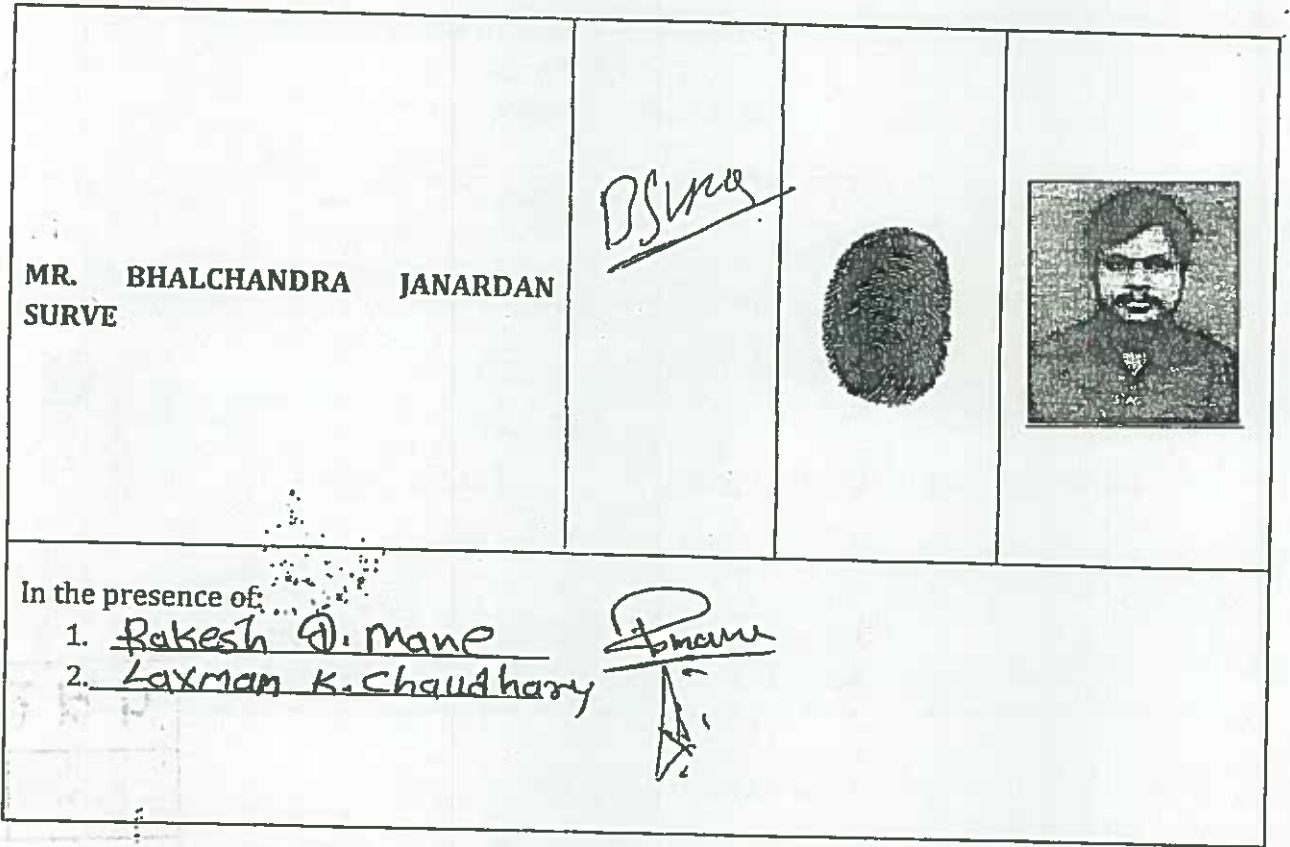 MR. BHALCHANDRA JANARDAN
SURVE
In the presence of:
1. Rakesh D. Mane
2. Laxman K. Chaudhary